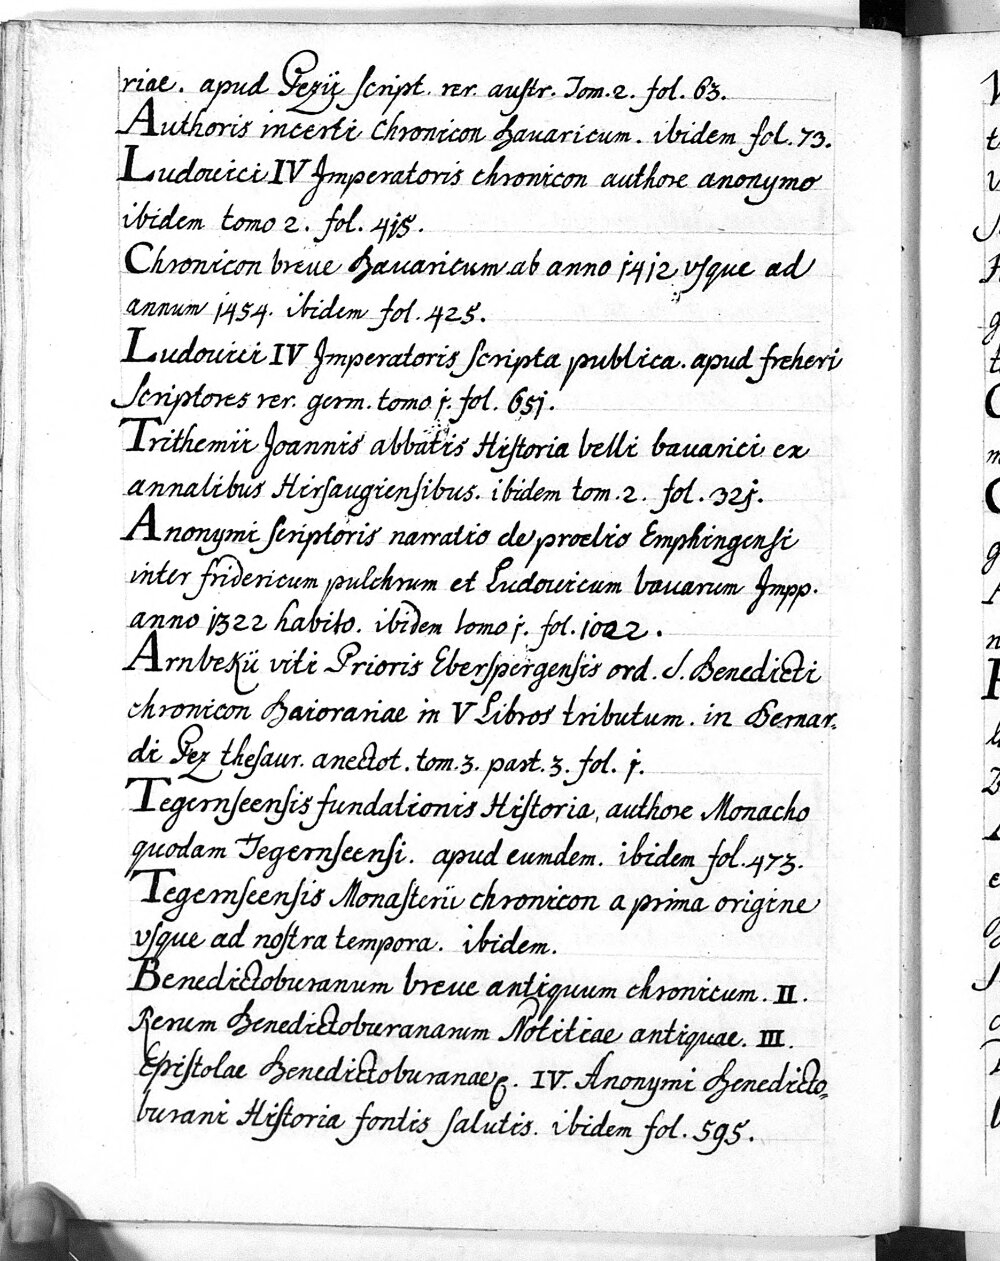 riae. apud Pezij script. rer. austr. Tom. 2. fol. 63.
Authoris incerti Chronicon bavaricum. ibidem fol. 73.
Ludovici IV Imperatoris chronicon authore anonymo
ibidem tomo 2. fol. 415.
Chronicon breve Bavaricum ab anno 1412 vsque ad
annum 1454. ibidem fol. 425.
Ludovici IV Imperatoris scripta publica. apud freheri
Scriptores rer. germ. tomo 1. fol. 651.
Trithemii Joannis abbatis Historia belli bavarici ex
annalibus Hirsaugiensibus. ibidem tom. 2. fol. 321.
Anonymi scriptoris narratio de proelio Emphingensi
inter fridericum pulchrum et Ludovicum bavarum Impp.
anno 1322 habito. ibidem tomo 1. fol. 1022.
Arnbekii viti Prioris Eberspergensis ord. S. Benedicti
chronicon Baiorariae in V Libros tributum. in Bernar.
di Pez thesaur. anectot. tom. 3. part. 3. fol. 1.
Tegernseensis fundationis Historia, authore Monacho
quodam Tegernseensi. apud eumdem. ibidem fol. 473.
Tegernseensis Monasterii chronicon a prima origine
vsque ad nostra tempora. ibidem.
Benedictoburanum breve antiquum chronicum. II.
Rerum Benedictoburanarum Notitiae antiquae. III.
Epistolae Benedictoburanae. IV. Anonymi Benedicto-
burani Historia fontis salutis. ibidem fol. 595.